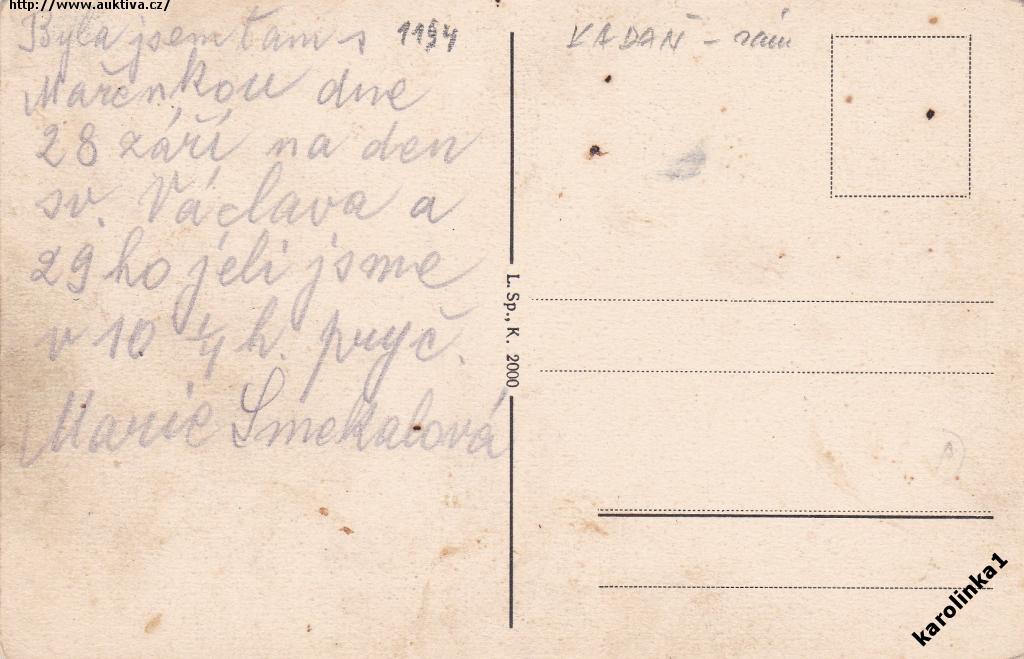 http://www.auktiva.cz/
Byla jsem tam s
Mařenkou dne
28 září na den
sv. Václava a
29 ho jeli jsme
v 10 1/4 h. pryč.
Marie Smekalová
1194
KADAŇ -
L. Sp., K. 2000
karolinka1